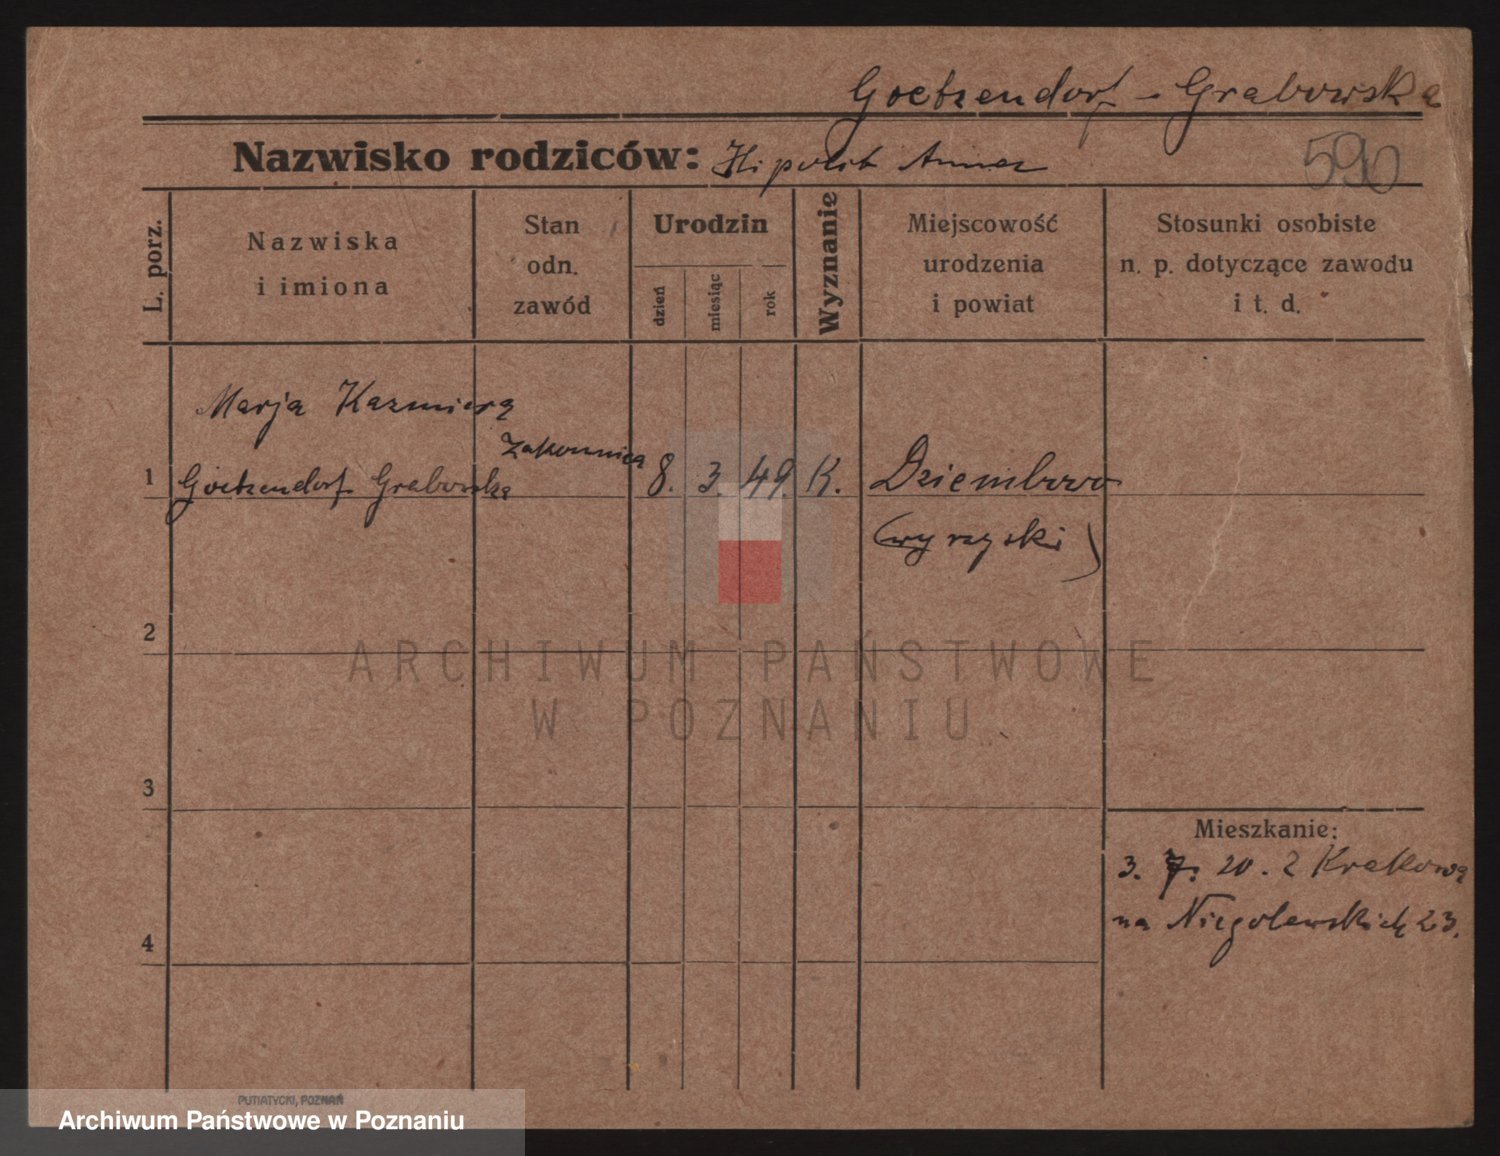 Goetzendorf-Grabowska
Nazwisko rodziców: Hipolit Anna
590
L. porz.
Nazwiska
i imiona
Stan
odn.
zawód
Urodzin
dzień
miesiąc
rok
Wyznanie
Miejscowość
urodzenia
i powiat
Stosunki osobiste
n. p. dotyczące zawodu
i t. d.
Marja Kazmiera
zakonnica
1 Goetzendorf Grabowska 8. 3. 49. K. Dziembowo
(wyrzyski)
2
ARCHIWUM PAŃSTWOWE
W POZNANIU
3
Mieszkanie:
3. 7. 20. z Krakowa
4
na Niegolewskich 23.
PUTIATYCKI, POZNAŃ
Archiwum Państwowe w Poznaniu